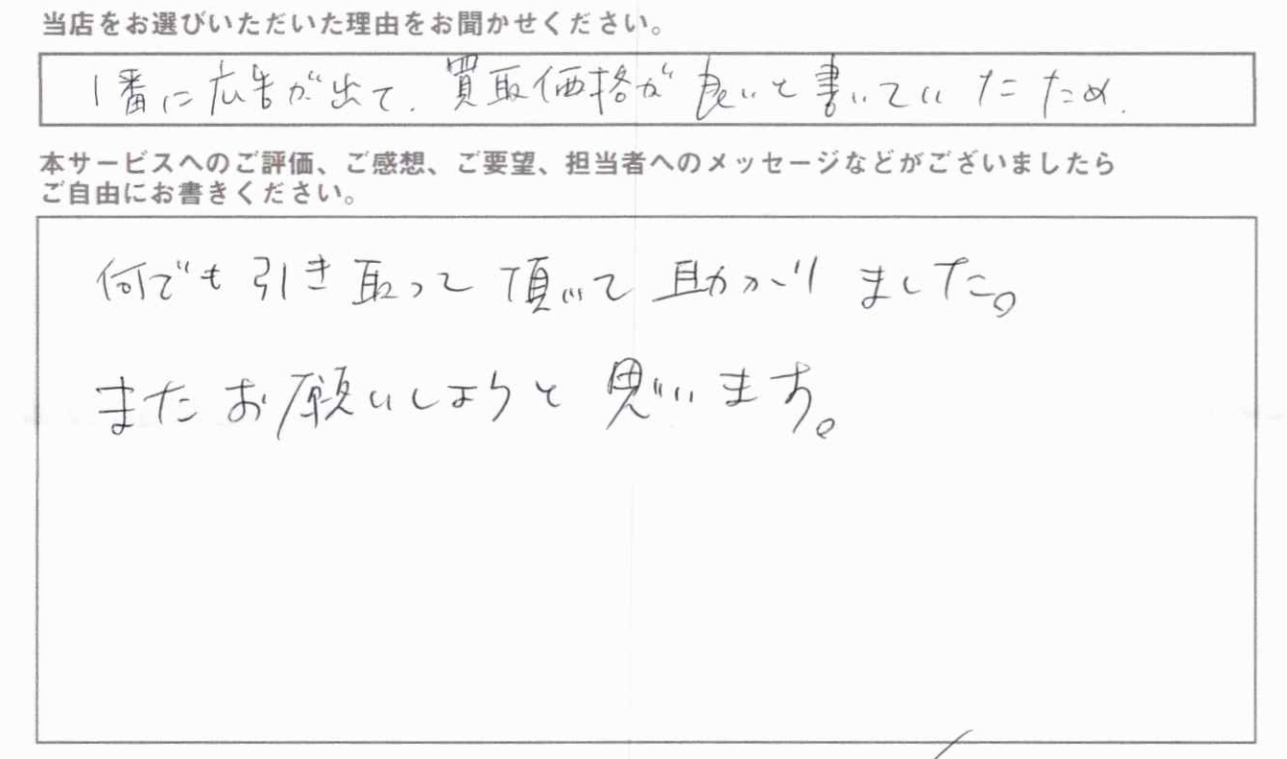 当店をお選びいただいた理由をお聞かせください。
1番に広告が出て、買取価格が良いと書いていたため.
本サービスへのご評価、ご感想、ご要望、担当者へのメッセージなどがございましたら
ご自由にお書きください。
何でも引き取って頂いて助かりました。
またお願いしようと思います。